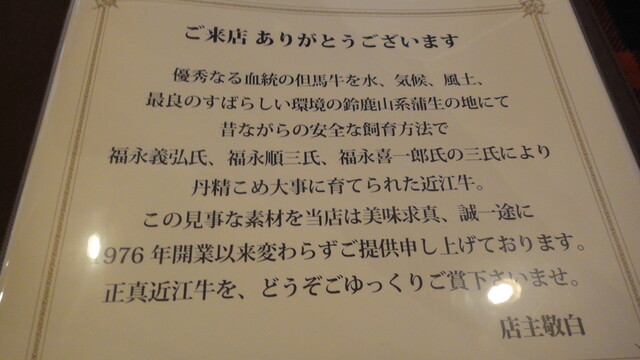 ご来店 ありがとうございます
優秀なる血統の但馬牛を水、気候、風土、
最良のすばらしい環境の鈴鹿山系蒲生の地にて
昔ながらの安全な飼育方法で
福永義弘氏、福永順三氏、福永喜一郎氏の三氏により
丹精こめ大事に育てられた近江牛。
この見事な素材を当店は美味求真、誠一途に
976年開業以来変わらずご提供申し上げております。
正真近江牛を、どうぞごゆっくりご賞下さいませ。
店主敬白